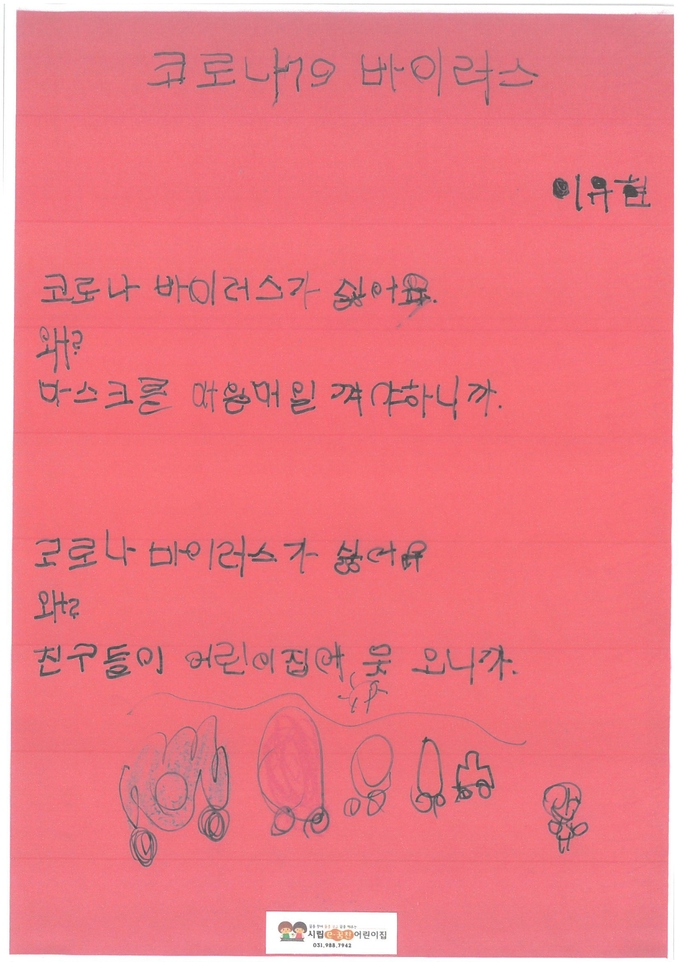 코로나19 바이러스
이유현
코로나 바이러스가 싫어요.
왜?
마스크를 매일매일 껴야하니까.
코로나 바이러스가 싫어요
왜?
친구들이 어린이집에 못 오니까.
시립 어린이집
031.988.7942